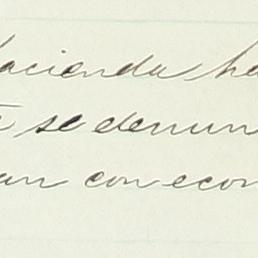 hacienda ha
se denun
an con econ